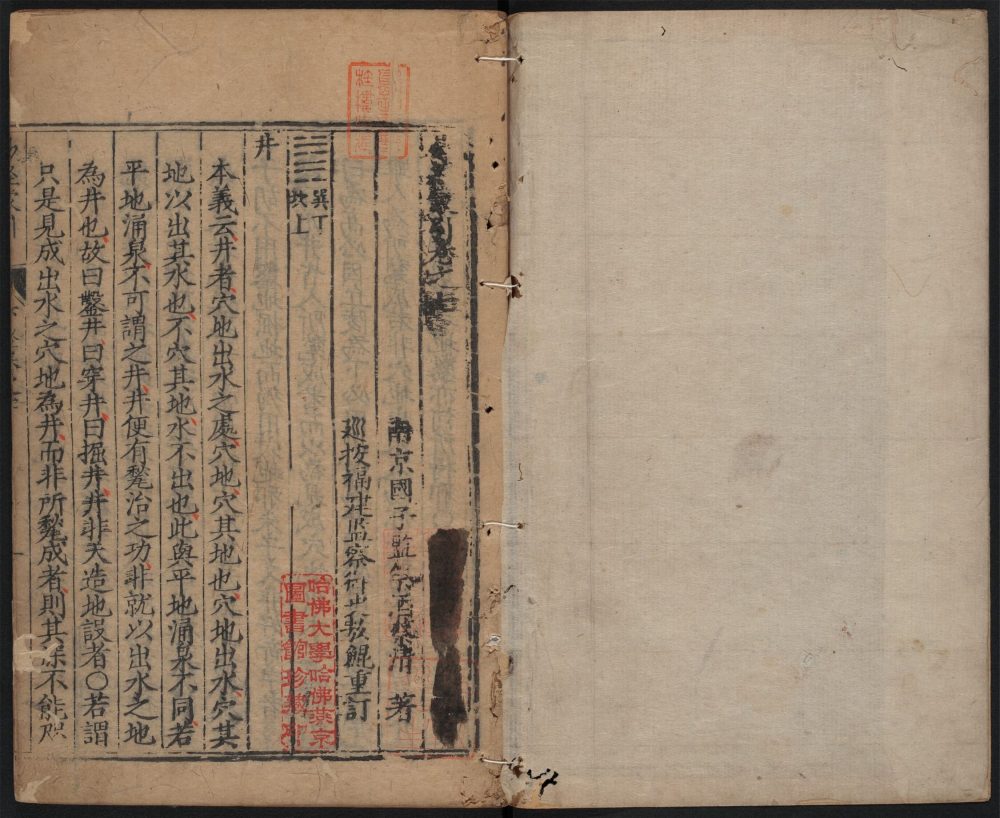 引卷之
南京國子監祭酒蔡清著
巡按福建監察御史敖鯤重訂
巽下
坎上
井
本義云井者穴地出水之處穴地穴其地也穴地出水穴其
地以出其水也不穴其地水不出也此與平地涌泉不同若
平地涌泉不可謂之井井便有鑿治之功非就以出水之地
為井也故曰鑿井曰穿井曰掘井井非天造地設者○若謂
只是見成出水之穴地為井而非所鑿成者則其深不能
哈佛大學哈佛燕京
圖書館珍藏印